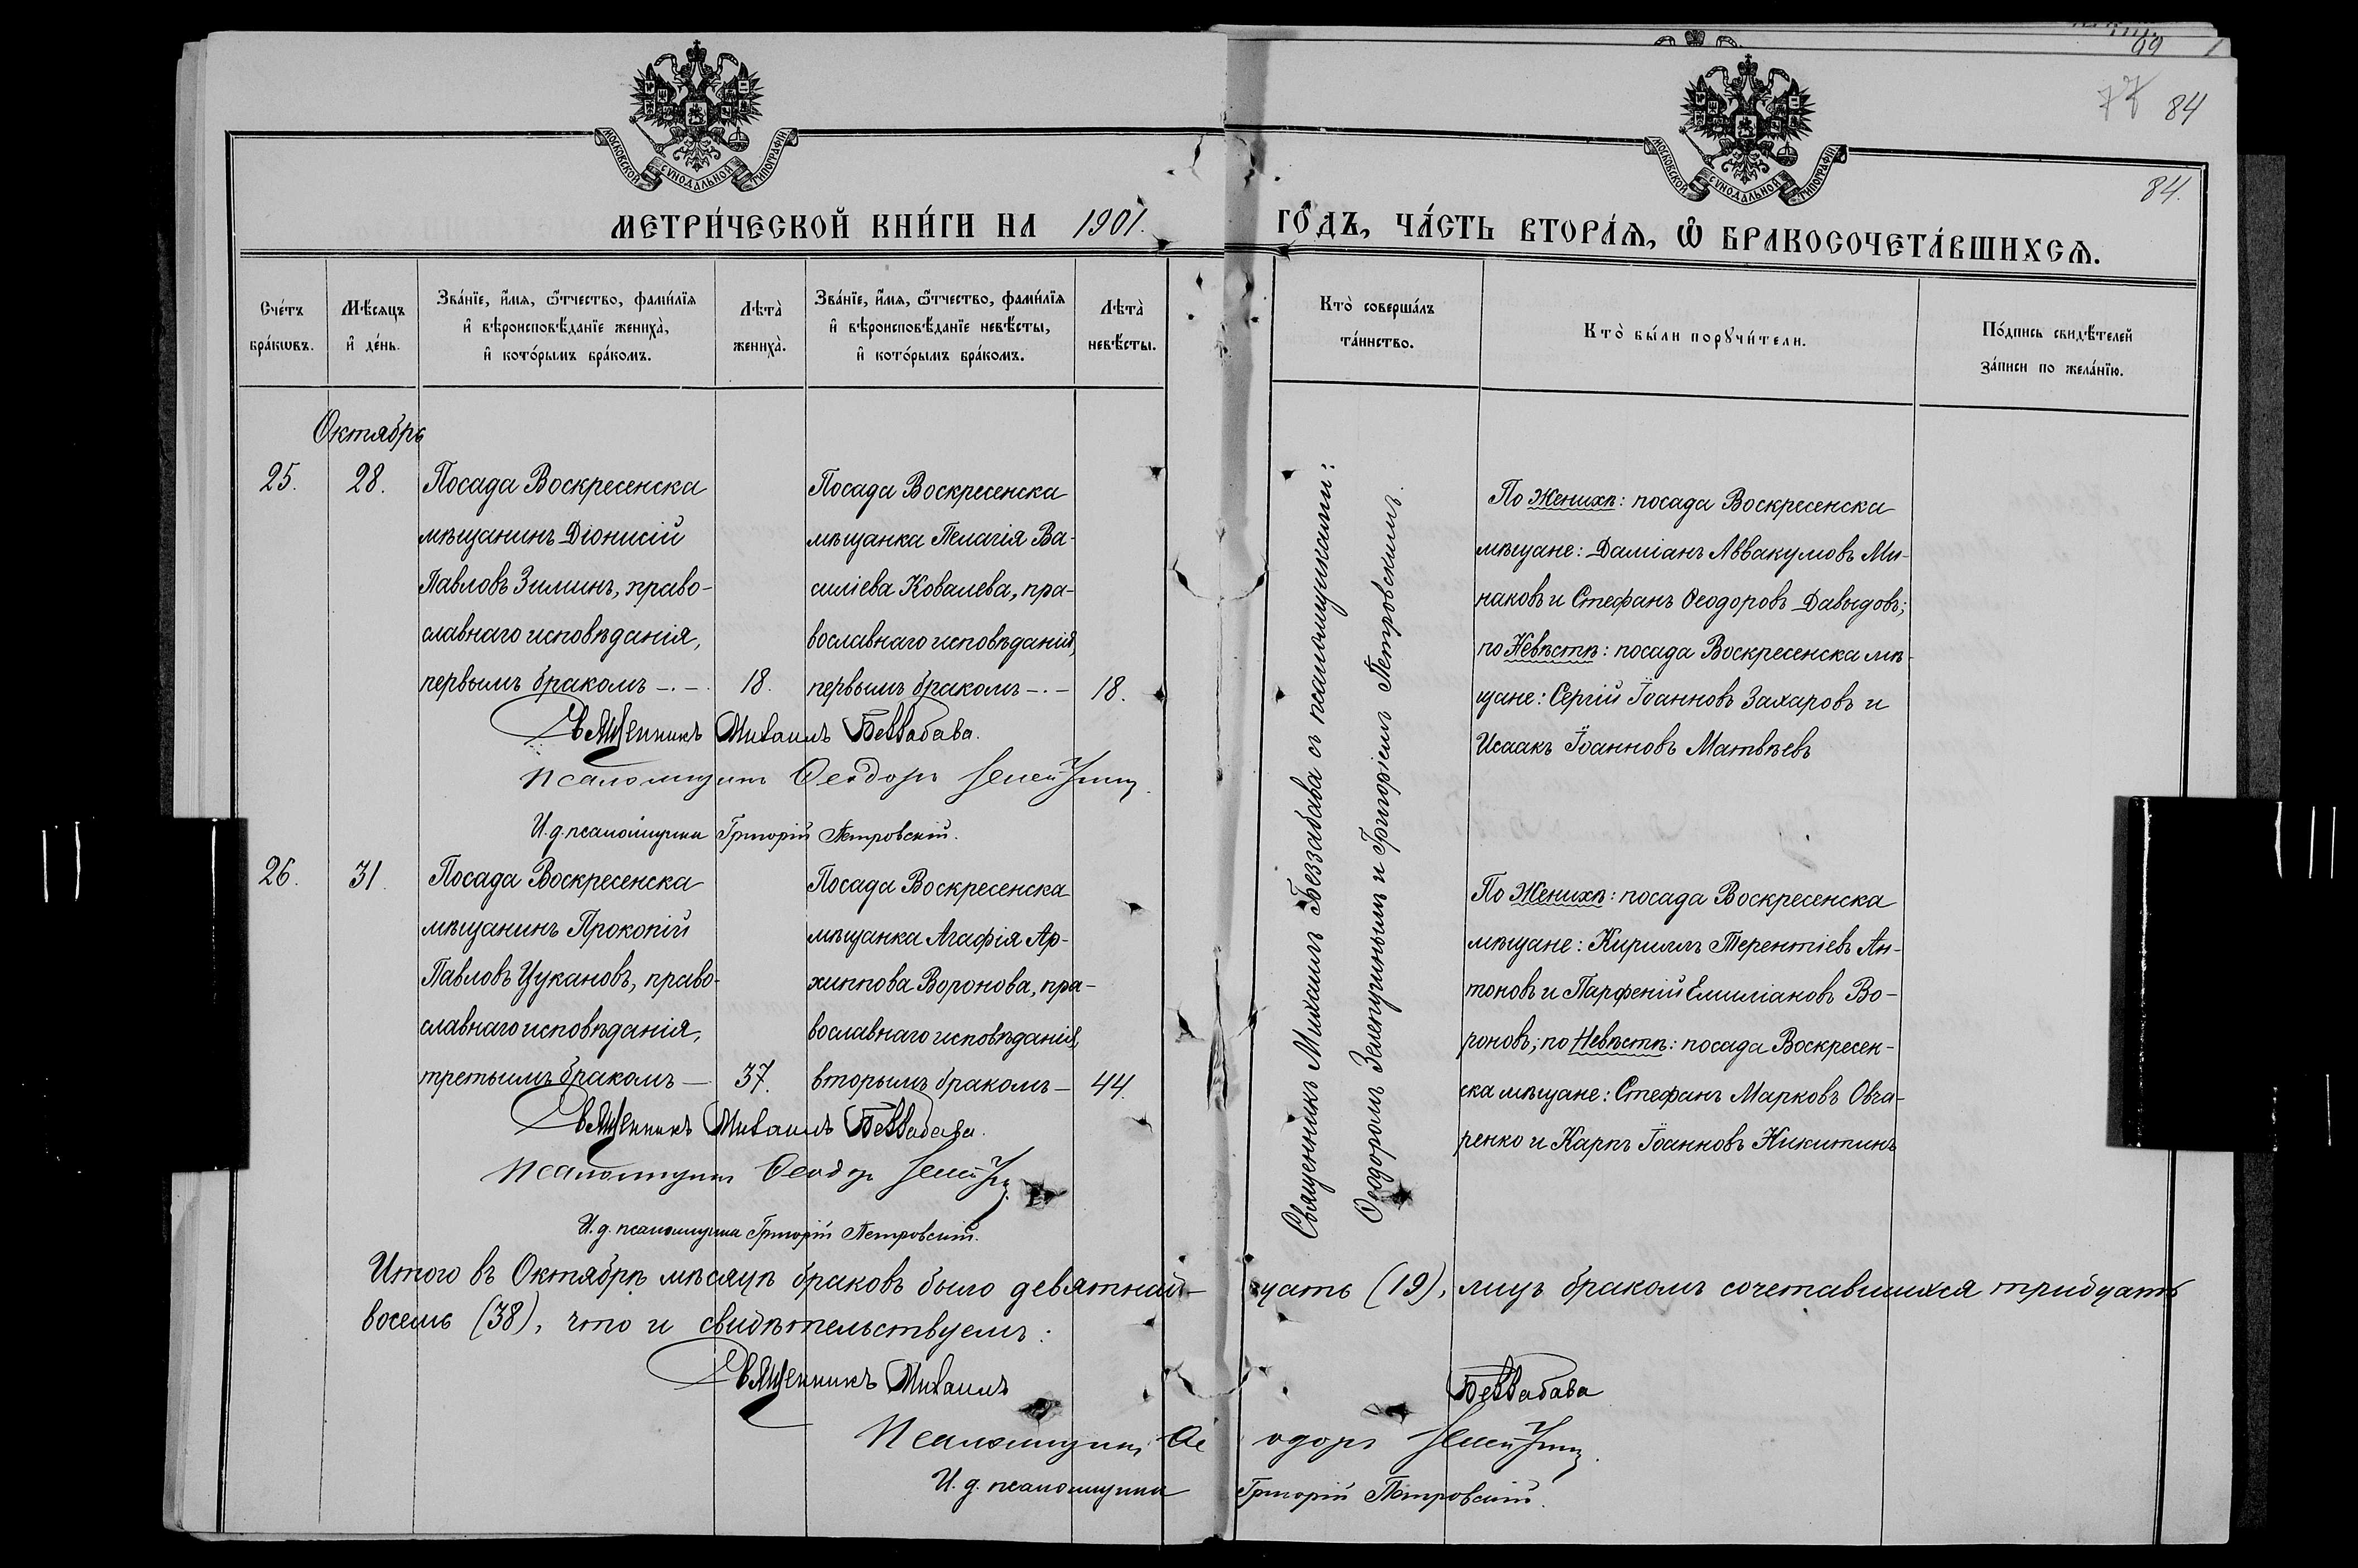 99 1
77 84
84.
МОСКОВСКОЙ СѴНОДАЛЬНОЙ ТИПОГРАФІИ
МОСКОВСКОЙ СѴНОДАЛЬНОЙ ТИПОГРАФІИ
МЕТРИ́ЧЕСКОЙ КНИ́ГИ НА 1901.
ГО́ДЪ, ЧА́СТЬ ВТОРА́Ѧ, Ѽ БРАКОСОЧЕТА́ВШИХСѦ.
Сче́тъ
бра́кωвъ.
Мѣ́сѧцъ
и҆ де́нь.
Зва́нїе, и҆́мѧ, ѻ҆́тчество, фами́лїѧ
и҆ вѣроисповѣ́данїе жениха̀,
и҆ кото́рымъ бра́комъ.
Лѣта̀
жениха̀.
Зва́нїе, и҆́мѧ, ѻ҆́тчество, фами́лїѧ
и҆ вѣроисповѣ́данїе невѣ́сты,
и҆ кото́рымъ бра́комъ.
Лѣта̀
невѣ́сты.
Кто̀ соверша́лъ
та́инство.
Кто̀ бы́ли порꙋчи́тели.
По́дпись свидѣ́телей
за́писи по жела́нїю.
Октябрь
25.
28.
Посада Воскресенска
мѣщанинъ Діонисій
Павловъ Зиминъ, право-
славнаго исповѣданія,
первымъ бракомъ -.-
18.
Посада Воскресенска
мѣщанка Пелагія Ва-
силіева Ковалева, пра-
вославнаго исповѣданія,
первымъ бракомъ -.-
18.
Священникъ Михаилъ Беззабава съ псаломщиками:
Ѳеодоромъ Зелепугинымъ и Григоріемъ Петровскимъ.
По Женихѣ: посада Воскресенска
мѣщане: Даміанъ Аввакумовъ Ми-
наковъ и Стефанъ Ѳеодоровъ Давыдовъ;
по Невѣстѣ: посада Воскресенска мѣ-
щане: Сергій Іоанновъ Захаровъ и
Исаакъ Іоанновъ Матвѣевъ
Священникъ Михаилъ Беззабава.
Псаломщикъ Ѳеодоръ
И. д. псаломщика Григорій Петровскій.
26.
31.
Посада Воскресенска
мѣщанинъ Прокопій
Павловъ Цукановъ, право-
славнаго исповѣданія,
третьимъ бракомъ —
37.
Посада Воскресенска
мѣщанка Агафія Ар-
хиппова Воронова, пра-
вославнаго исповѣданія,
вторымъ бракомъ —
44.
По Женихѣ: посада Воскресенска
мѣщане: Кириллъ Терентіевъ Ан-
тоновъ и Парфеній Емиліановъ Во-
роновъ; по Невѣстѣ: посада Воскресен-
ска мѣщане: Стефанъ Марковъ Овча-
ренко и Карпъ Іоанновъ Никитинъ
Священникъ Михаилъ Беззабава.
Псаломщикъ Ѳеодоръ
И. д. псаломщика Григорій Петровскій.
Итого въ Октябрѣ мѣсяцѣ браковъ было девятнад- цать (19), лицъ бракомъ сочетавшихся тридцать
восемь (38), что и свидѣтельствуемъ:
Священникъ Михаилъ Беззабава
Псаломщикъ Ѳе одоръ
И. д. псаломщика Григорій Петровскій.